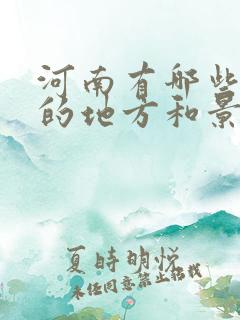 河南有哪些
的地方和景
夏时明悦
未经同意禁止搭载